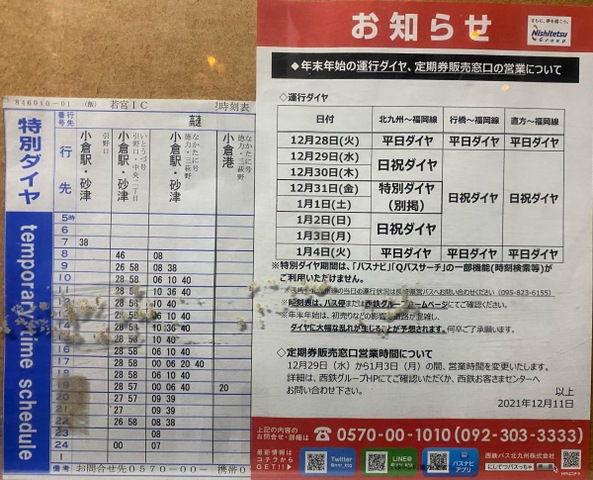 846010-01 (飯) 若宮IC 時刻表
特別ダイヤ
temporary time schedule
行先
高速
行先
引野口
小倉駅・砂津
いとうづ号
引野口・中央二丁目
小倉駅・砂津
なかたに号
徳力・三萩野
小倉駅・砂津
なかたに号
徳力・三萩野
小倉港
5時
6
7 38
8 46 08
9 26 58 08 38
10 28 58 06 10 40
11 28 58 06 10 40
28 58 06 10 40
28 58 06 10 40
14 28 58 10 36 40
28 58 10 40
16 28 58 06 10 40
17 28 58 00 06 20 40
18 28 57 06 10 40
28 57 00 06 40 20
20 28 57 09 39
21 27 09 39
22 26 58 08 38
23 08
24 00 07
1
備考 お問合せ先0570-00- 携帯0
お知らせ
まちに、夢を描こう。
Nishitetsu
Group
◆年末年始の運行ダイヤ、定期券販売窓口の営業について
◇運行ダイヤ
日付 北九州～福岡線 行橋～福岡線 直方～福岡線
12月28日(火) 平日ダイヤ 平日ダイヤ 平日ダイヤ
12月29日(水) 日祝ダイヤ 日祝ダイヤ 日祝ダイヤ
12月30日(木)
12月31日(金) 特別ダイヤ
1月1日(土) (別掲)
1月2日(日) 日祝ダイヤ
1月3日(月)
1月4日(火) 平日ダイヤ 平日ダイヤ 平日ダイヤ
※特別ダイヤ期間は、「バスナビ」「Qバスサーチ」の一部機能(時刻検索等)が
ご利用いただけません。
の当日の運行状況は長崎県営バスへお問い合わせください(095-823-6155)
※時刻表は、バス停または西鉄グループホームページにてご確認ください。
※年末年始は、初売りなどの影響 道路が混雑し、
ダイヤに大幅な乱れが生じることが予想されます。何卒ご了承願います。
◇定期券販売窓口営業時間について
12月29日(水)から1月3日(月)の間、営業時間を変更いたします。
詳細は、西鉄グループHPにてご確認いただくか、西鉄お客さまセンターへ
お問い合わせ下さい。
以上
2021年12月11日
上記の内容の
お問合せ・詳細は
0570-00-1010(092-303-3333)
最新情報は
コチラから
GET!!
Twitter
@nnr_ktq
LINE@
バスナビ
アプリ
西鉄バス北九州株式会社
にしてつバスっちゃ 検索